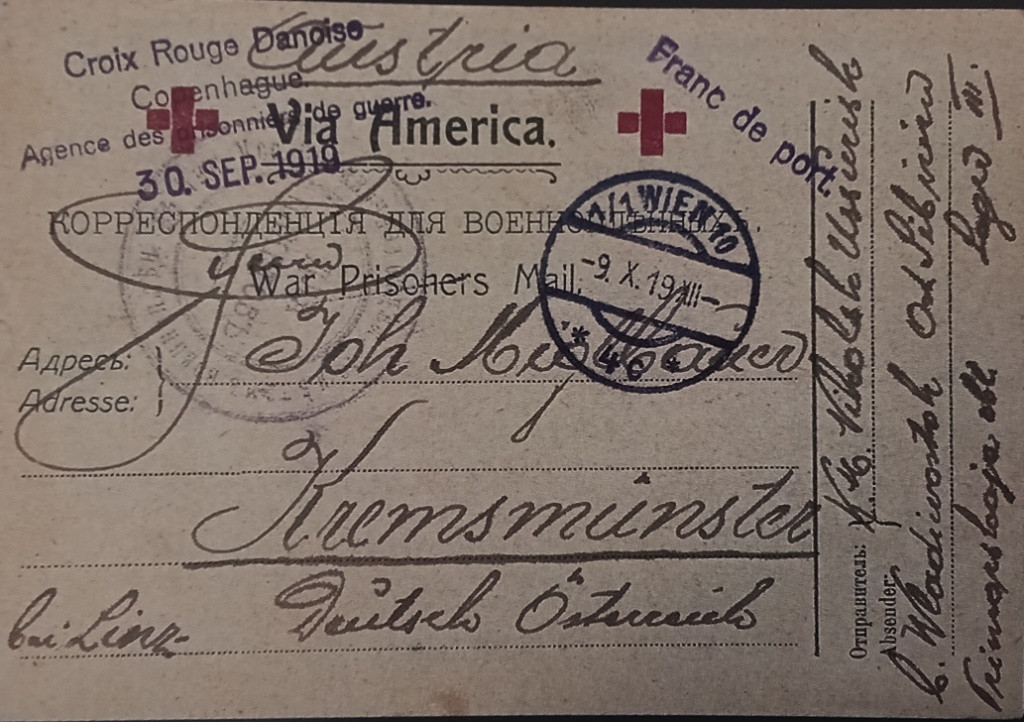 Austria
Croix Rouge Danoise
Copenhague.
Agence des prisonniers de guerre.
30. SEP. 1919
Via America.
Franc de port.
КОРРЕСПОНДЕНЦІЯ ДЛЯ ВОЕННОПЛѢННЫХЪ.
War Prisoners Mail.
1/1 WIEN 10
-9. X. 19 XII-
* 4c *
Адресъ:
Adresse:
Joh
Kremsmünster
bei Linz
Deutsch Österreich
Отправитель:
Absender:
Nikolsk Ussurisk
Wladiwostok Ost Sibirien
Primorskaja obl. Lager